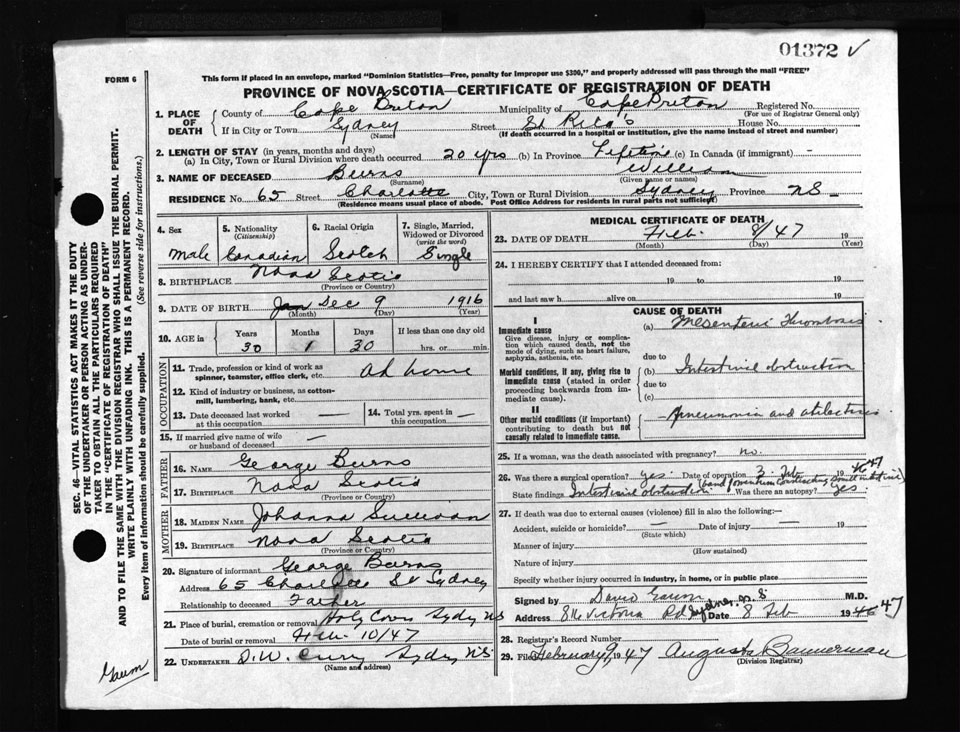 01372 ✓
FORM 6
This form if placed in an envelope, marked "Dominion Statistics—Free, penalty for improper use $300," and properly addressed will pass through the mail "FREE"
PROVINCE OF NOVA SCOTIA—CERTIFICATE OF REGISTRATION OF DEATH
1. PLACE OF DEATH County of Cape Breton Municipality of Cape Breton Registered No.
(For use of Registrar General only)
If in City or Town Sydney Street St Rita's House No.
(Name) (If death occurred in a hospital or institution, give the name instead of street and number)
2. LENGTH OF STAY (in years, months and days)
(a) In City, Town or Rural Division where death occurred 20 yrs (b) In Province Lifetime (c) In Canada (if immigrant) —
3. NAME OF DECEASED Burns William
(Surname) (Given name or names)
RESIDENCE No. 65 Street Charlotte City, Town or Rural Division Sydney Province NS
(Residence means usual place of abode. Post Office Address for residents in rural parts not sufficient)
4. Sex Male
5. Nationality (Citizenship) Canadian
6. Racial Origin Scotch
7. Single, Married, Widowed or Divorced (write the word) Single
8. BIRTHPLACE Nova Scotia
(Province or Country)
9. DATE OF BIRTH Jan Dec 9 1916
(Month) (Day) (Year)
10. AGE in Years 30 Months 1 Days 30 If less than one day old hrs. or min.
OCCUPATION
11. Trade, profession or kind of work as spinner, teamster, office clerk, etc. At home
12. Kind of industry or business, as cotton-mill, lumbering, bank, etc.
13. Date deceased last worked at this occupation —
14. Total yrs. spent in this occupation —
15. If married give name of wife or husband of deceased —
FATHER
16. NAME George Burns
17. BIRTHPLACE Nova Scotia
(Province or Country)
MOTHER
18. MAIDEN NAME Johanna Sullivan
19. BIRTHPLACE Nova Scotia
(Province or Country)
20. Signature of informant George Burns
Address 65 Charlotte St Sydney
Relationship to deceased Father
21. Place of burial, cremation or removal Holy Cross Sydney NS
Date of burial or removal Feb. 10/47
22. UNDERTAKER D. W. Curry Sydney NS
(Name and address)
MEDICAL CERTIFICATE OF DEATH
23. DATE OF DEATH Feb. 8/47 19
(Month) (Day) (Year)
24. I HEREBY CERTIFY that I attended deceased from:
19 to 19
and last saw h alive on 19
CAUSE OF DEATH
I
Immediate cause
Give disease, injury or complication which caused death, not the mode of dying, such as heart failure, asphyxia, asthenia, etc.
(a) Mesenteric Thrombosis
due to
Morbid conditions, if any, giving rise to immediate cause (stated in order proceeding backwards from immediate cause)
(b) Intestinal obstruction
due to
(c)
II
Other morbid conditions (if important) contributing to death but not causally related to immediate cause.
Pneumonia and atelectasis
25. If a woman, was the death associated with pregnancy? no.
26. Was there a surgical operation? Yes. Date of operation 3. Feb 1946 47
State findings Intestinal obstruction (band of omentum constricting small intestine) Was there an autopsy? Yes.
27. If death was due to external causes (violence) fill in also the following:—
Accident, suicide or homicide? — Date of injury — 19
(State which)
Manner of injury
(How sustained)
Nature of injury
Specify whether injury occurred in industry, in home, or in public place
Signed by David Gaum M.D.
Address Victoria Rd Sydney. N. S Date 8 Feb 1946 47
28. Registrar's Record Number
29. Filed February 9, 1947 Augusta Bannerman
(Division Registrar)
SEC. 46—VITAL STATISTICS ACT MAKES IT THE DUTY
OF THE UNDERTAKER OR PERSON ACTING AS UNDER-
TAKER TO OBTAIN ALL THE PARTICULARS REQUIRED
IN THE "CERTIFICATE OF REGISTRATION OF DEATH"
AND TO FILE THE SAME WITH THE DIVISION REGISTRAR WHO SHALL ISSUE THE BURIAL PERMIT.
WRITE PLAINLY WITH UNFADING INK. THIS IS A PERMANENT RECORD.
Every item of information should be carefully supplied. (See reverse side for instructions.)
Gaum